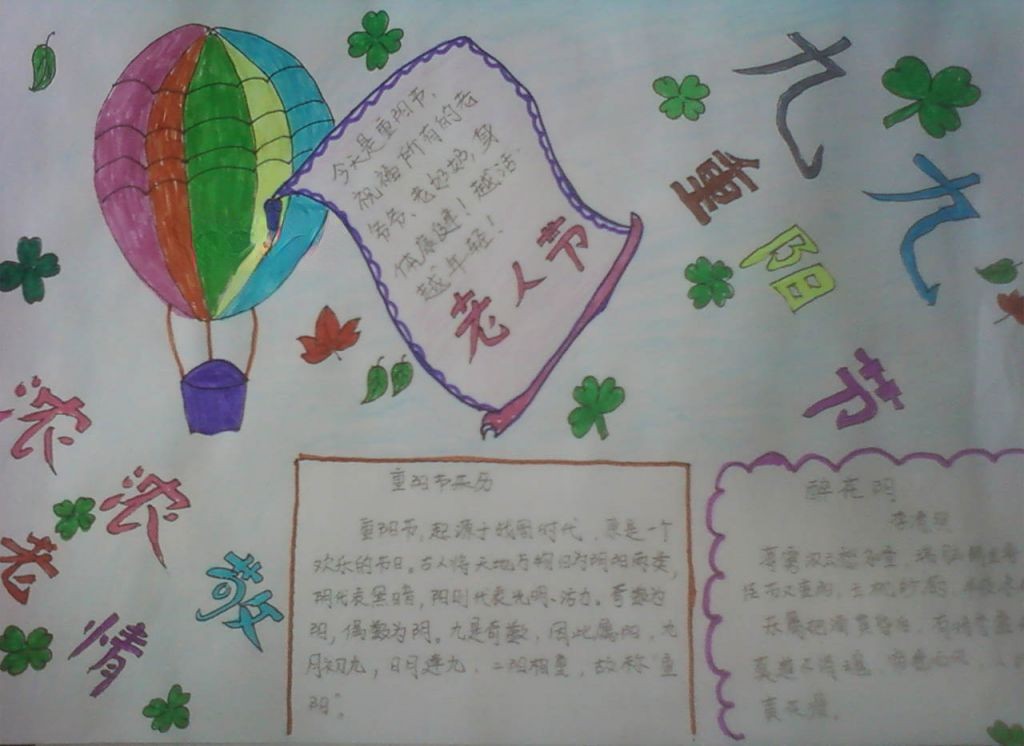 九九
重阳节
今天是重阳节，
祝福所有的老
爷爷、老奶奶，身
体康健！越活
越年轻！
老人节
浓浓
敬
老
情
重阳节来历
重阳节，起源于战国时代，原是一个
欢乐的节日。古人将天地万物归为阴阳两类，
阴代表黑暗，阳则代表光明、活力。奇数为
阳，偶数为阴。九是奇数，因此属阳，九
月初九，日月逢九，二阳相重，故称“重
阳”。
醉花阴
李清照
薄雾浓云愁永昼，瑞脑销金兽
佳节又重阳，玉枕纱厨，半夜凉
东篱把酒黄昏后，有暗香盈
莫道不消魂，帘卷西风，人
黄花瘦。